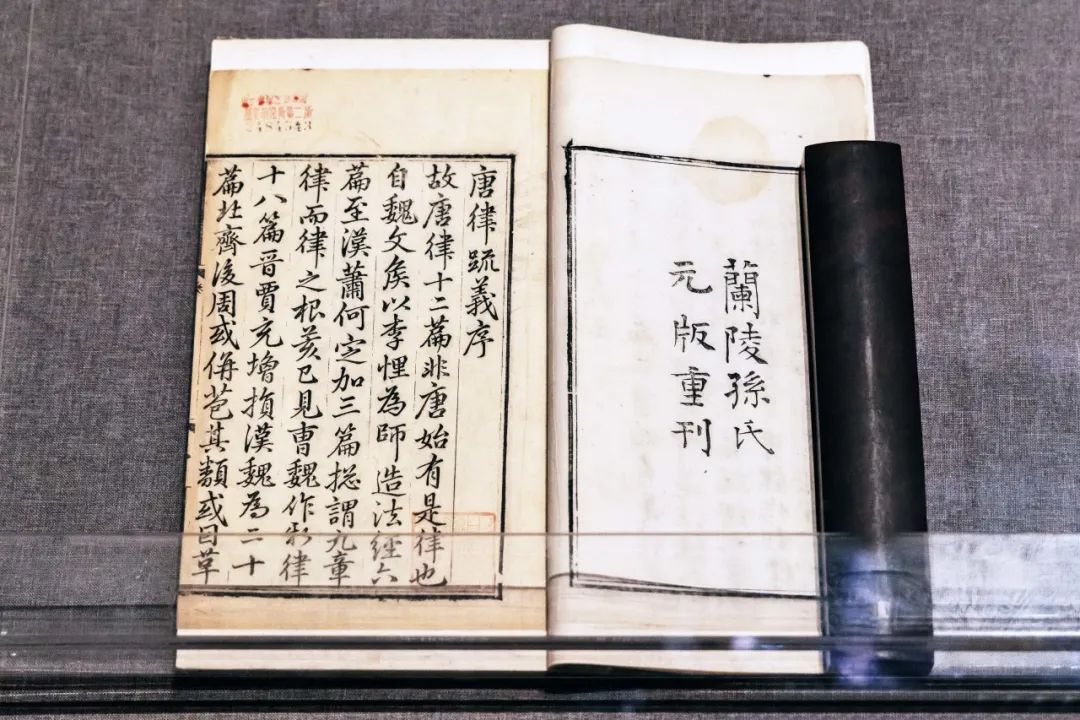 蘭陵孫氏
元版重刊
唐律疏義序
故唐律十二篇非唐始有是律也
自魏文矦以李悝為師造法經六
篇至漢蕭何定加三篇摠謂九章
律而律之根荄已見曹魏作新律
十八篇晉賈充增損漢魏為二十
篇北齊後周或併苞其類或因草